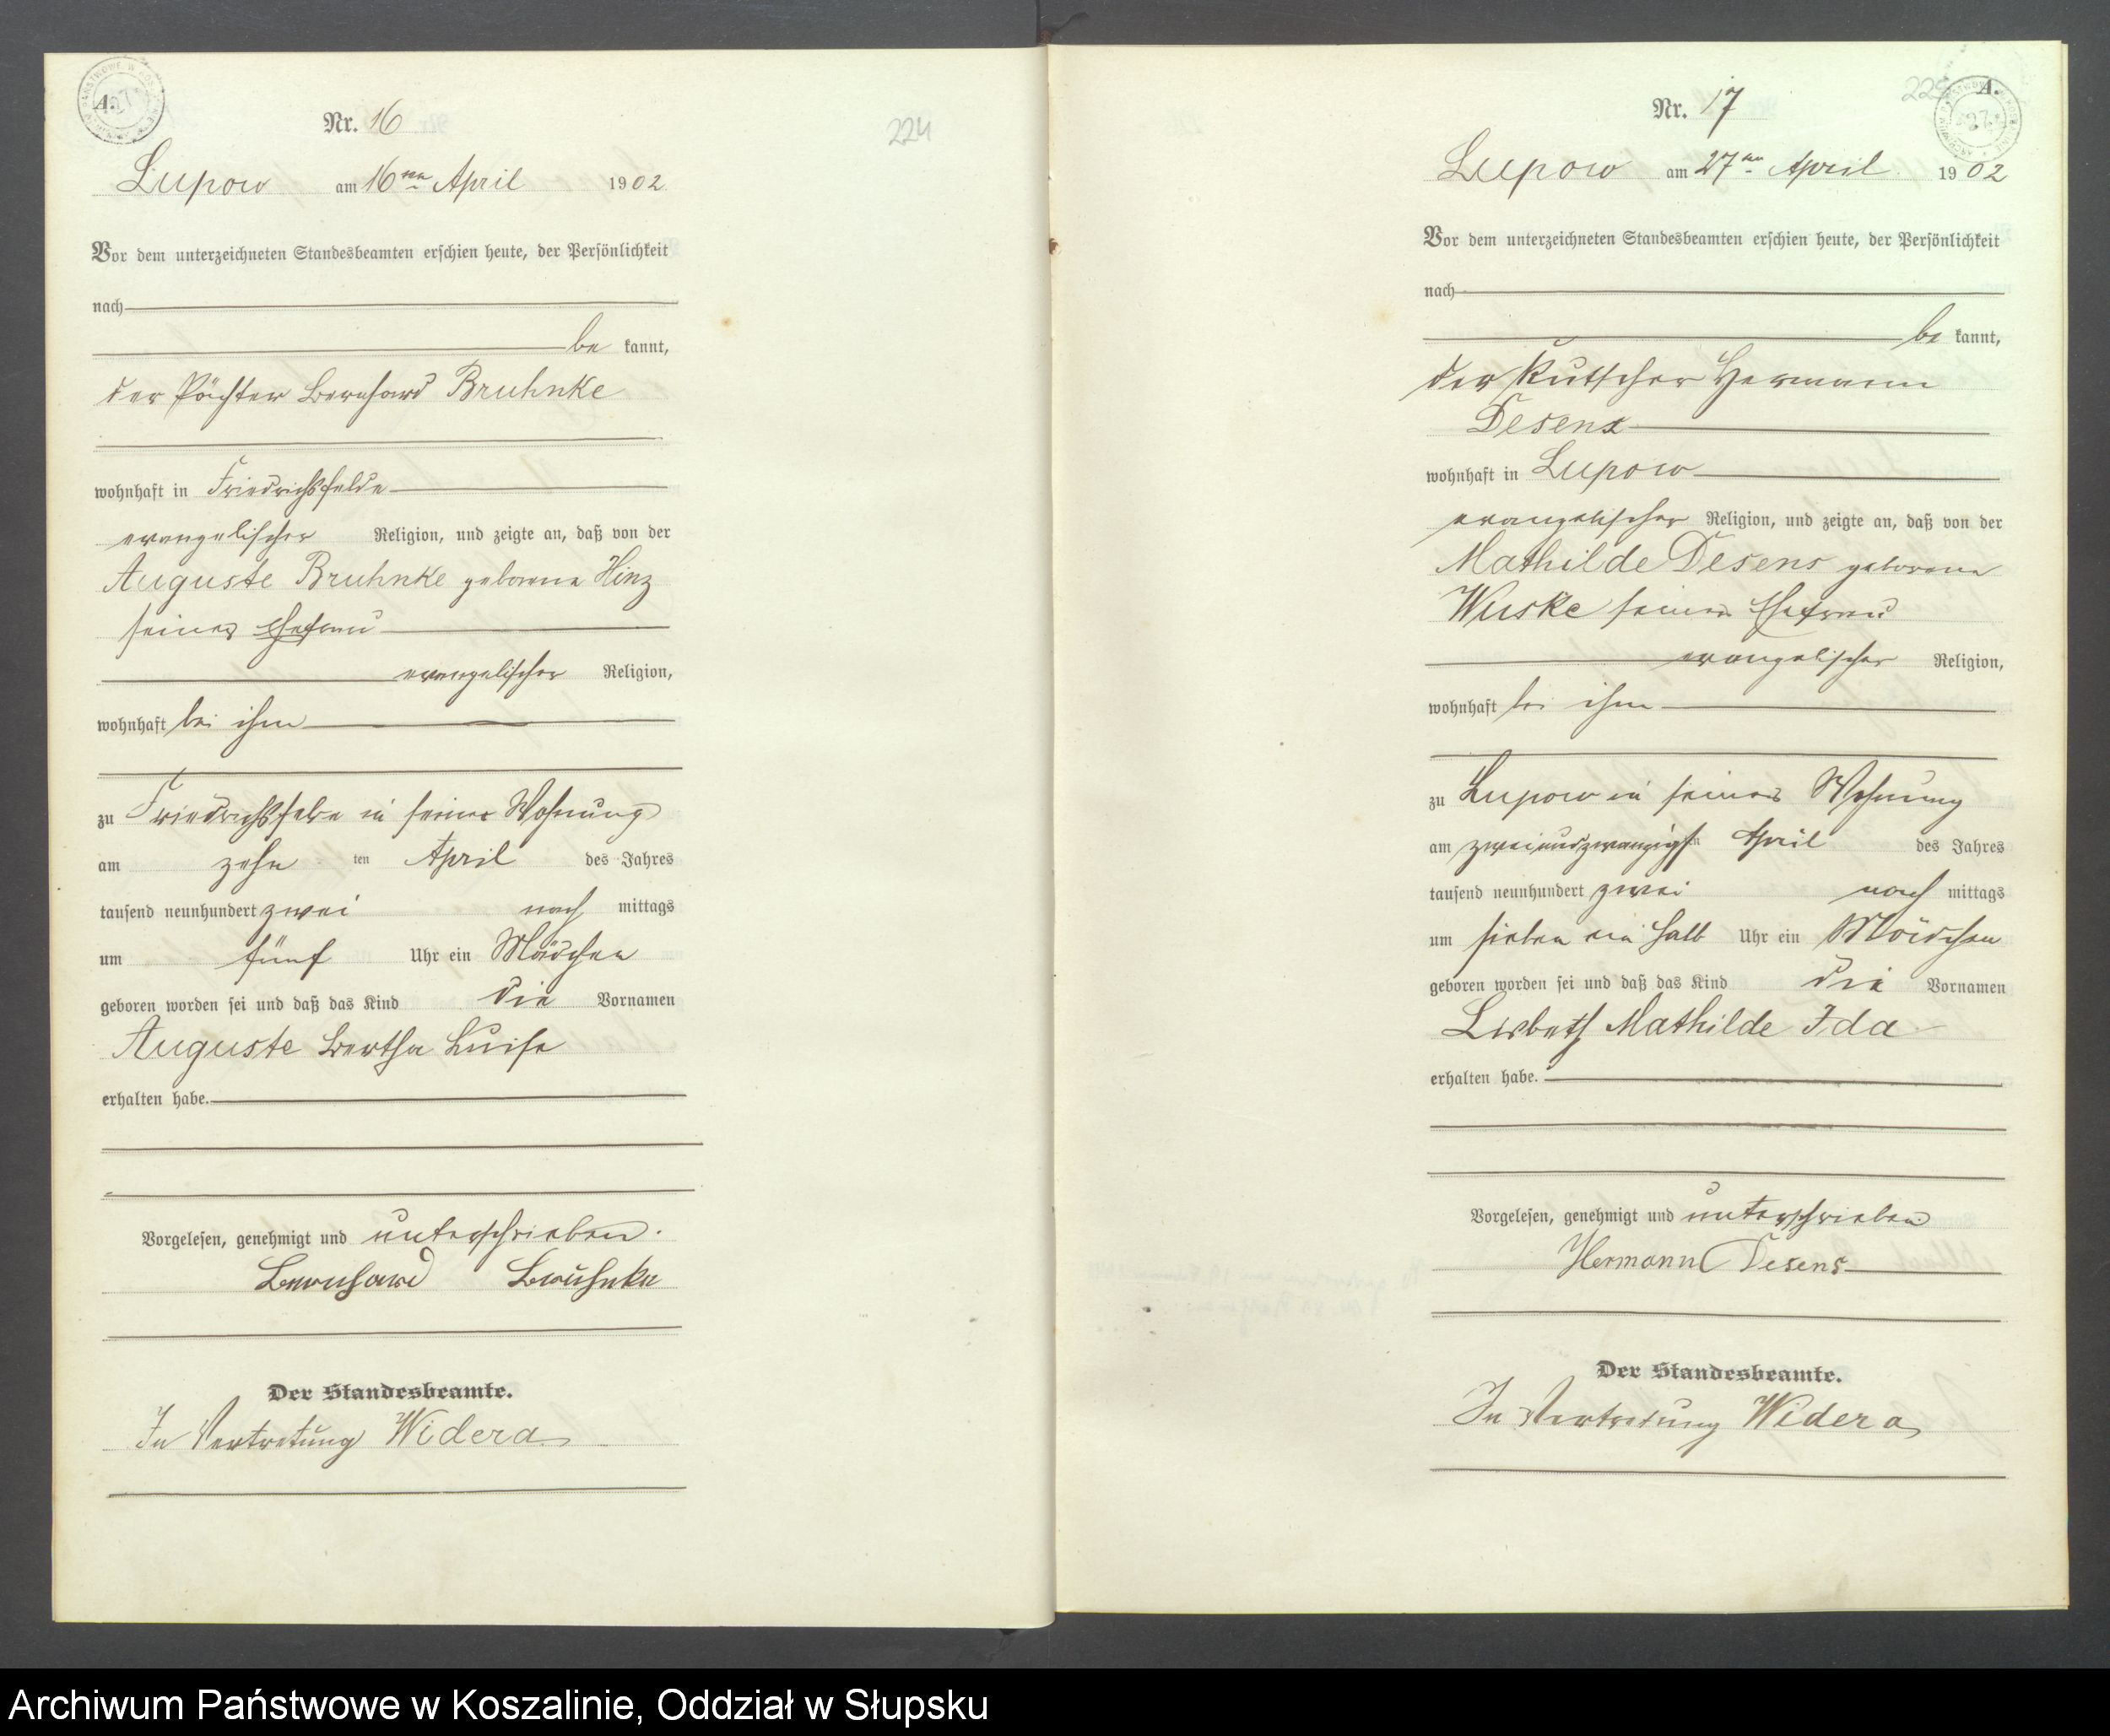 A.
Nr. 16
224
Lupow am 16ten April 1902
Vor dem unterzeichneten Standesbeamten erschien heute, der Persönlichkeit
nach
be kannt,
der Pächter Bernhard Bruhnke
wohnhaft in Friedrichsfelde
evangelischer Religion, und zeigte an, daß von der
Auguste Bruhnke geborene Hinz
seiner Ehefrau
evangelischer Religion,
wohnhaft bei ihm
zu Friedrichsfelde in seiner Wohnung
am zehn ten April des Jahres
tausend neunhundert zwei nach mittags
um fünf Uhr ein Mädchen
geboren worden sei und daß das Kind die Vornamen
Auguste Bertha Luise
erhalten habe.
Vorgelesen, genehmigt und unterschrieben.
Bernhard Bruhnke
Der Standesbeamte.
In Vertretung Widera
225 A.
Nr. 17
Lupow am 27ten April 1902
Vor dem unterzeichneten Standesbeamten erschien heute, der Persönlichkeit
nach
be kannt,
der Kutscher Hermann
Desens
wohnhaft in Lupow
evangelischer Religion, und zeigte an, daß von der
Mathilde Desens geborene
Wuske seiner Ehefrau
evangelischer Religion,
wohnhaft bei ihm
zu Lupow in seiner Wohnung
am zweiundzwanzigsten April des Jahres
tausend neunhundert zwei nach mittags
um sieben ein halb Uhr ein Mädchen
geboren worden sei und daß das Kind die Vornamen
Lisbeth Mathilde Ida
erhalten habe.
Vorgelesen, genehmigt und unterschrieben
Hermann Desens
Der Standesbeamte.
In Vertretung Widera
Archiwum Państwowe w Koszalinie, Oddział w Słupsku